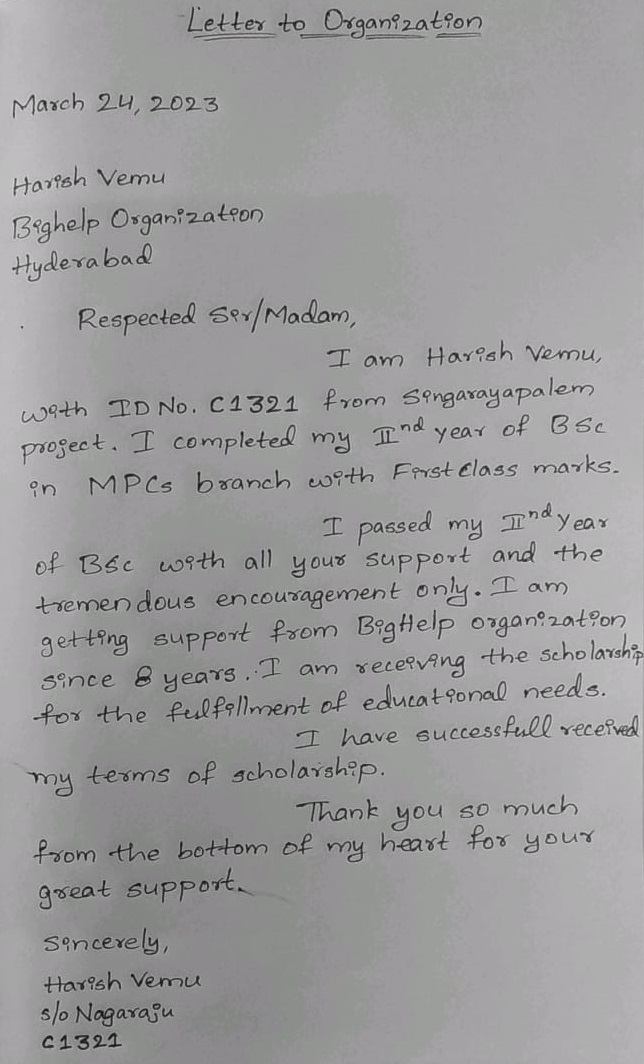 Letter to Organization
March 24, 2023
Harish Vemu
Bighelp Organization
Hyderabad
Respected Sir/Madam,
I am Harish Vemu,
with ID No. C1321 from Singarayapalem
project. I completed my IInd year of BSc
in MPCs branch with First class marks.
I passed my IInd year
of BSc with all your support and the
tremendous encouragement only. I am
getting support from BigHelp organization
since 8 years. I am receiving the scholarship
for the fulfillment of educational needs.
I have successfull received
my terms of scholarship.
Thank you so much
from the bottom of my heart for your
great support.
Sincerely,
Harish Vemu
s/o Nagaraju
C1321